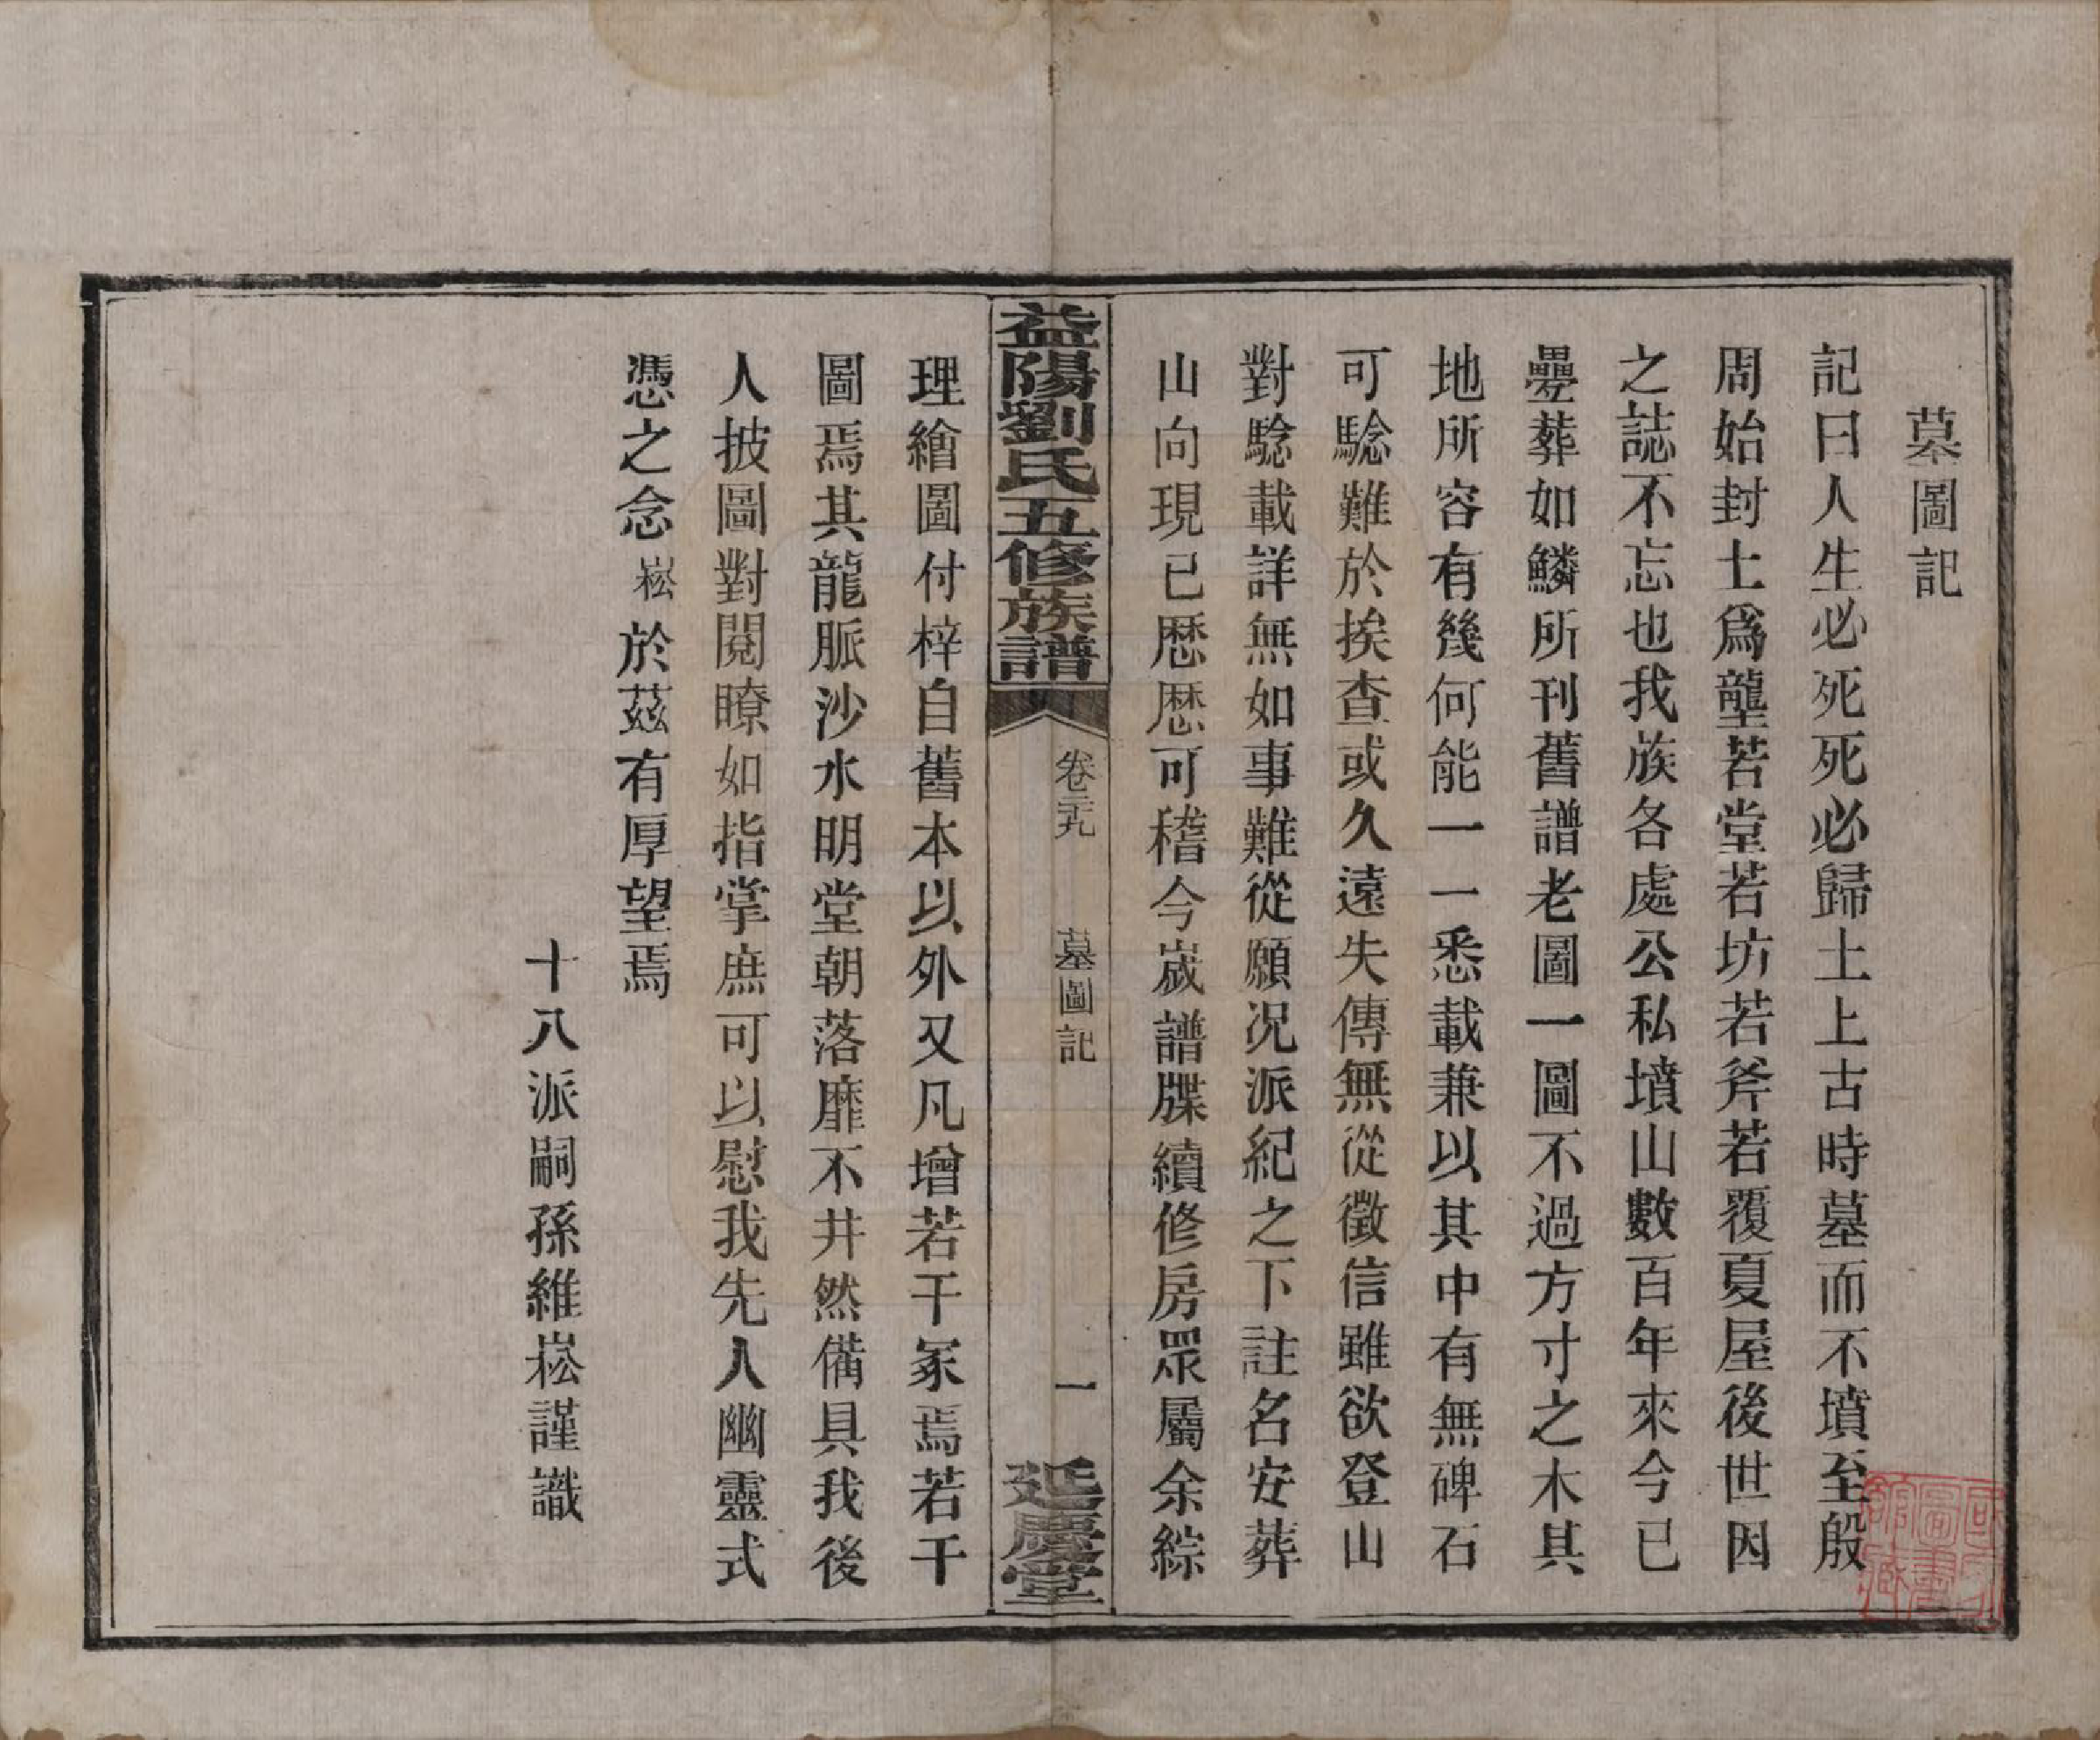 墓圖記
記曰人生必死死必歸土上古時墓而不墳至殷
周始封土爲壟若堂若坊若斧若覆夏屋後世因
之誌不忘也我族各處公私墳山數百年來今已
疊葬如鱗所刊舊譜老圖一圖不過方寸之木其
地所容有幾何能一一悉載兼以其中有無碑石
可騐難於挨查或久遠失傳無從徵信雖欲登山
對騐載詳無如事難從願况派紀之下註名安葬
山向現已歴歴可稽今嵗譜牒續修房眾屬余綜
益陽劉氏五修族譜
卷三十九
墓圖記
一
延慶堂
理繪圖付梓自舊本以外又凡增若干冢焉若干
圖焉其龍脈沙水明堂朝落靡不井然備具我後
人披圖對閱瞭如指掌庶可以慰我先人幽靈式
憑之念崧於茲有厚望焉
十八派嗣孫維崧謹識